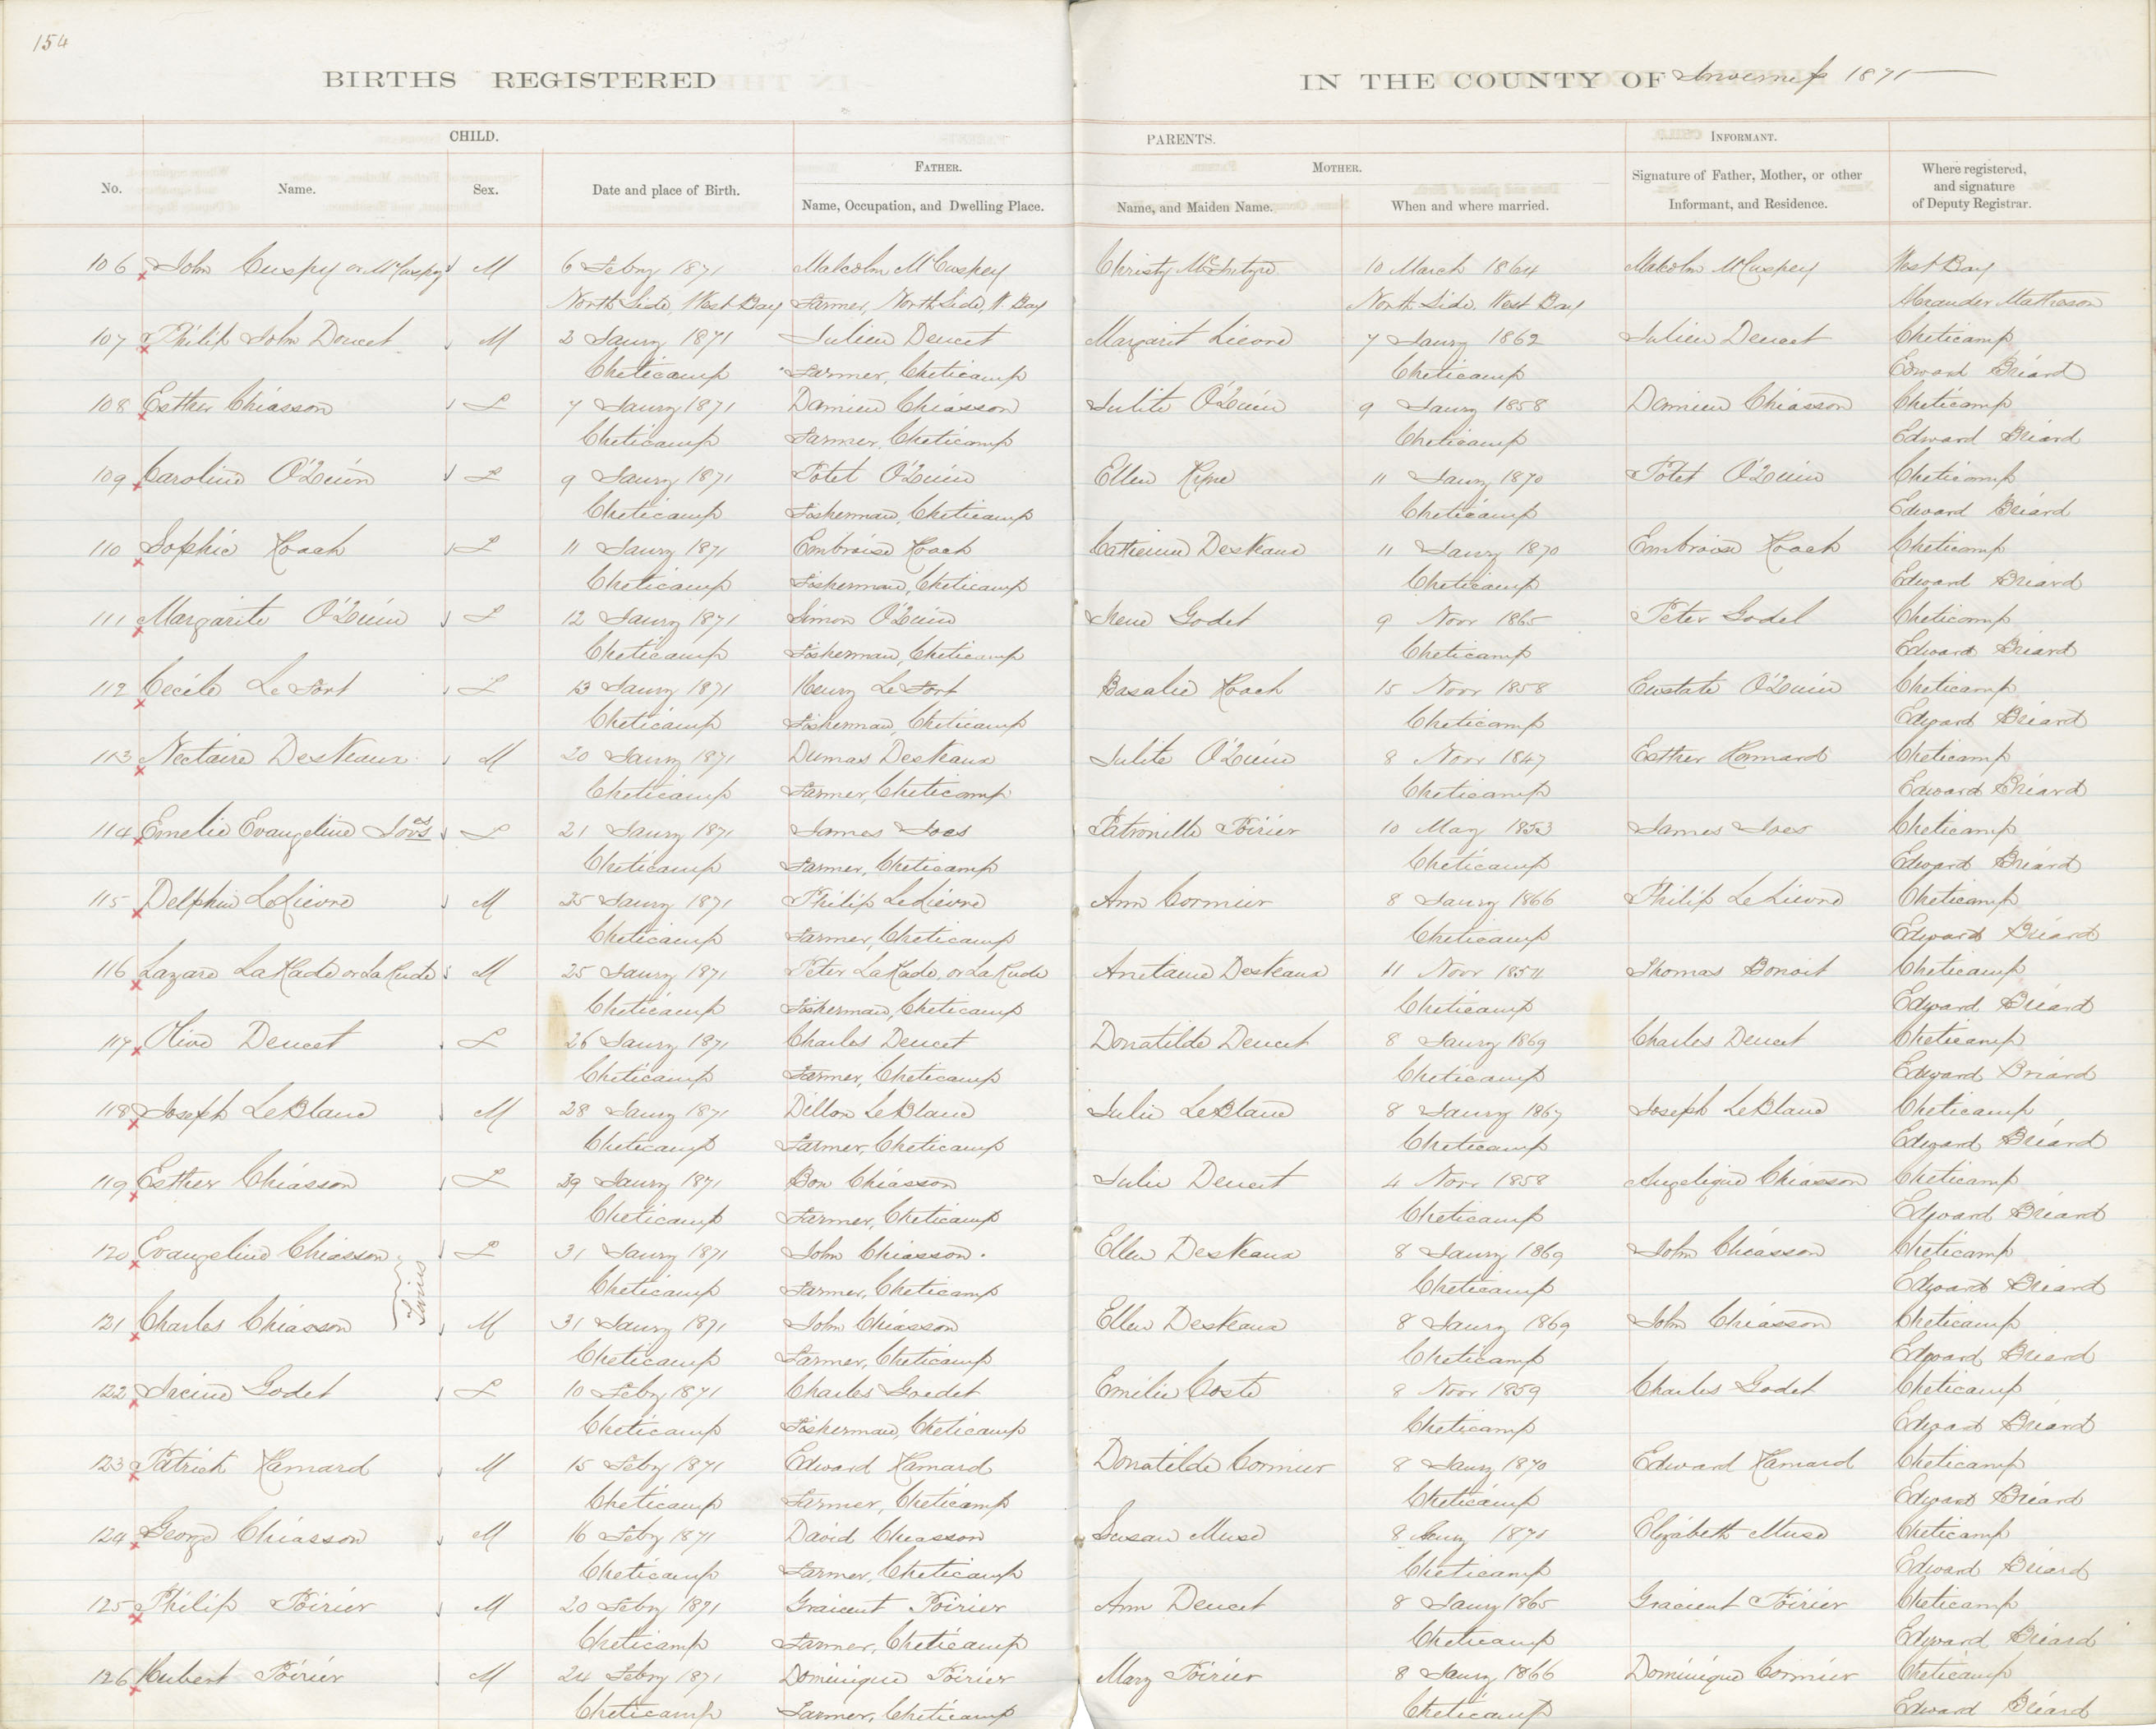 154
BIRTHS REGISTERED IN THE COUNTY OF Inverness 1871
CHILD. PARENTS. INFORMANT.
No. Name. Sex. Date and place of Birth. FATHER. Name, Occupation, and Dwelling Place. MOTHER. Name, and Maiden Name. When and where married. Signature of Father, Mother, or other Informant, and Residence. Where registered, and signature of Deputy Registrar.
106 John Cuspy or McCuspy M 6 Feby 1871 Malcolm McCuspey Christy McIntyre 10 March 1864 Malcolm McCuspey West Bay
North Side, West Bay Farmer, North Side, W. Bay North Side, West Bay Alexander Matheson
107 Philip John Doucet M 2 Jany 1871 Julien Doucet Margarit Lievre 7 Jany 1862 Julien Doucet Cheticamp
Cheticamp Farmer, Cheticamp Cheticamp Edward Briard
108 Esther Chiasson F 7 Jany 1871 Damien Chiasson Julite O'Quin 9 Jany 1858 Damien Chiasson Cheticamp
Cheticamp Farmer, Cheticamp Cheticamp Edward Briard
109 Caroline O'Quin F 9 Jany 1871 Polet O'Quin Ellen 11 Jany 1870 Polet O'Quin Cheticamp
Cheticamp Fisherman, Cheticamp Cheticamp Edward Briard
110 Sophie Roach F 11 Jany 1871 Embroise Roach Catherine Desveaux 11 Jany 1870 Embroise Roach Cheticamp
Cheticamp Fisherman, Cheticamp Cheticamp Edward Briard
111 Margarite O'Quin F 12 Jany 1871 Simon O'Quin Irene Godet 9 Novr 1865 Peter Godel Cheticamp
Cheticamp Fisherman, Cheticamp Cheticamp Edward Briard
112 Cecile LeFort F 13 Jany 1871 Henry LeFort Basalie Roach 15 Novr 1858 Eustate O'Quin Cheticamp
Cheticamp Fisherman, Cheticamp Cheticamp Edward Briard
113 Nectaire Desveaux M 20 Jany 1871 Dumas Desveaux Julite O'Quin 8 Novr 1847 Esther Cheticamp
Cheticamp Farmer, Cheticamp Cheticamp Edward Briard
114 Emelie Evangeline F 21 Jany 1871 James Joes Patronille Poirier 10 May 1853 James Joes Cheticamp
Cheticamp Farmer, Cheticamp Cheticamp Edward Briard
115 Delphin LeLievre M 25 Jany 1871 Philip LeLievre Ann Cormier 8 Jany 1866 Philip LeLievre Cheticamp
Cheticamp Farmer, Cheticamp Cheticamp Edward Briard
116 Lazare LaRade or LaRude M 25 Jany 1871 Peter LaRade, or LaRude Anitaine Desveaux 11 Novr Thomas Benoit Cheticamp
Cheticamp Fisherman, Cheticamp Cheticamp Edward Briard
117 Olive Doucet F 26 Jany 1871 Charles Doucet Donatilde Doucet 8 Jany 1869 Charles Doucet Cheticamp
Cheticamp Farmer, Cheticamp Cheticamp Edward Briard
118 Joseph LeBlanc M 28 Jany 1871 Dillon LeBlanc Julie LeBlanc 8 Jany 1867 Joseph LeBlanc Cheticamp
Cheticamp Farmer, Cheticamp Cheticamp Edward Briard
119 Esther Chiasson F 29 Jany 1871 Bon Chiasson Julie Doucet 4 Novr 1858 Angelique Chiasson Cheticamp
Cheticamp Farmer, Cheticamp Cheticamp Edward Briard
120 Evangeline Chiasson F 31 Jany 1871 John Chiasson Ellen Desveaux 8 Jany 1869 John Chiasson Cheticamp
Twins Cheticamp Farmer, Cheticamp Cheticamp Edward Briard
121 Charles Chiasson M 31 Jany 1871 John Chiasson Ellen Desveaux 8 Jany 1869 John Chiasson Cheticamp
Cheticamp Farmer, Cheticamp Cheticamp Edward Briard
122 Godet F 10 Feby 1871 Charles Goedet Emilie Coste 8 Novr 1859 Charles Godet Cheticamp
Cheticamp Fisherman, Cheticamp Cheticamp Edward Briard
123 Patrick Hamard M 15 Feby 1871 Edward Hamard Donatilde Cormier 8 Jany 1870 Edward Hamard Cheticamp
Cheticamp Farmer, Cheticamp Cheticamp Edward Briard
124 George Chiasson M 16 Feby 1871 David Chiasson Susan Muse 8 Jany 1870 Elizabeth Muse Cheticamp
Cheticamp Farmer, Cheticamp Cheticamp Edward Briard
125 Philip Poirier M 20 Feby 1871 Graicent Poirier Ann Doucet 8 Jany 1865 Gracient Poirier Cheticamp
Cheticamp Farmer, Cheticamp Cheticamp Edward Briard
126 Hubert Poirier M 24 Feby 1871 Dominique Poirier Mary Poirier 8 Jany 1866 Dominique Cormier Cheticamp
Cheticamp Farmer, Cheticamp Cheticamp Edward Briard